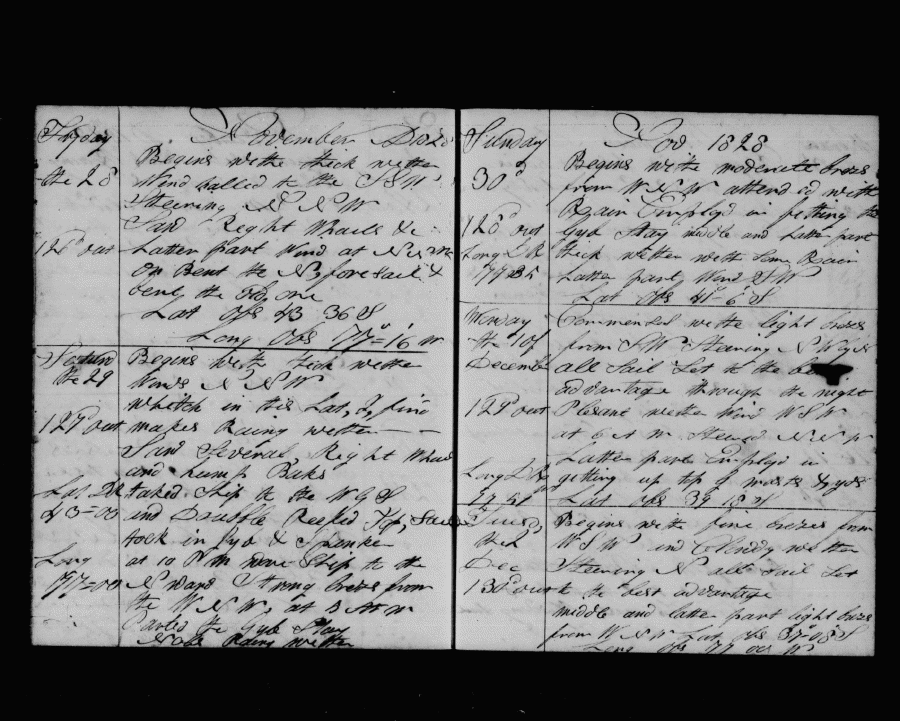 November D 1828
Fryday
the 28
126d out
Begins withe thick wether
Wind halled to the S S W
Steering N N W
Saw Reght Whails &c
Latter part Wind at N
Bent the N, foresail &
bent, the old, one
Lat Obs 43 36 S
Long Obs 77°=16 W
the 29
127d out
Lat DR
43=00
Long
77=00
Begins with thick wether
Winds N N W
whitch in this Lat, I, find
makes Rainy wether
Saw Several, Reght Whails
and hump Baks
taked Ship to the W S
and Doubble Reefed Top, Sails
took in Jyb & Spanker
at 10 P M wore Ship to the
N ward Strong brezes from
the W N W, at 3 A M
Parted the Gyb Stay
Rainy wether
Nov 1828
Sunday
30d
128d out
Long D R
77=35
Begins withe moderate brezes
from W N W attended with
Rain Employd in fetting the
Gyb Stay middle and latter part
thick wether with some Rain
Latter part Wind S W
Lat Obs 41°=6 S
Monday
the 1 of
December
129d out
Long D R
77 51
Commenses withe light brezes
from S W Steering N W
all Sail Set to the best
advantage through the night
Plesant wether Wind W S W
at 6 A M Steerd N N W
Latter part Employd in
getting up top g masts & yds
Lat Obs 39 18 S
Tues,
the 2
Dec
130d out
Begins with fine brezes from
W S W and Clouddy wether
Steering N all sail Set
to the best advantage
middle and latter part light brezes
from W N W Lat Obs 37°48 S
Long Obs 77 W